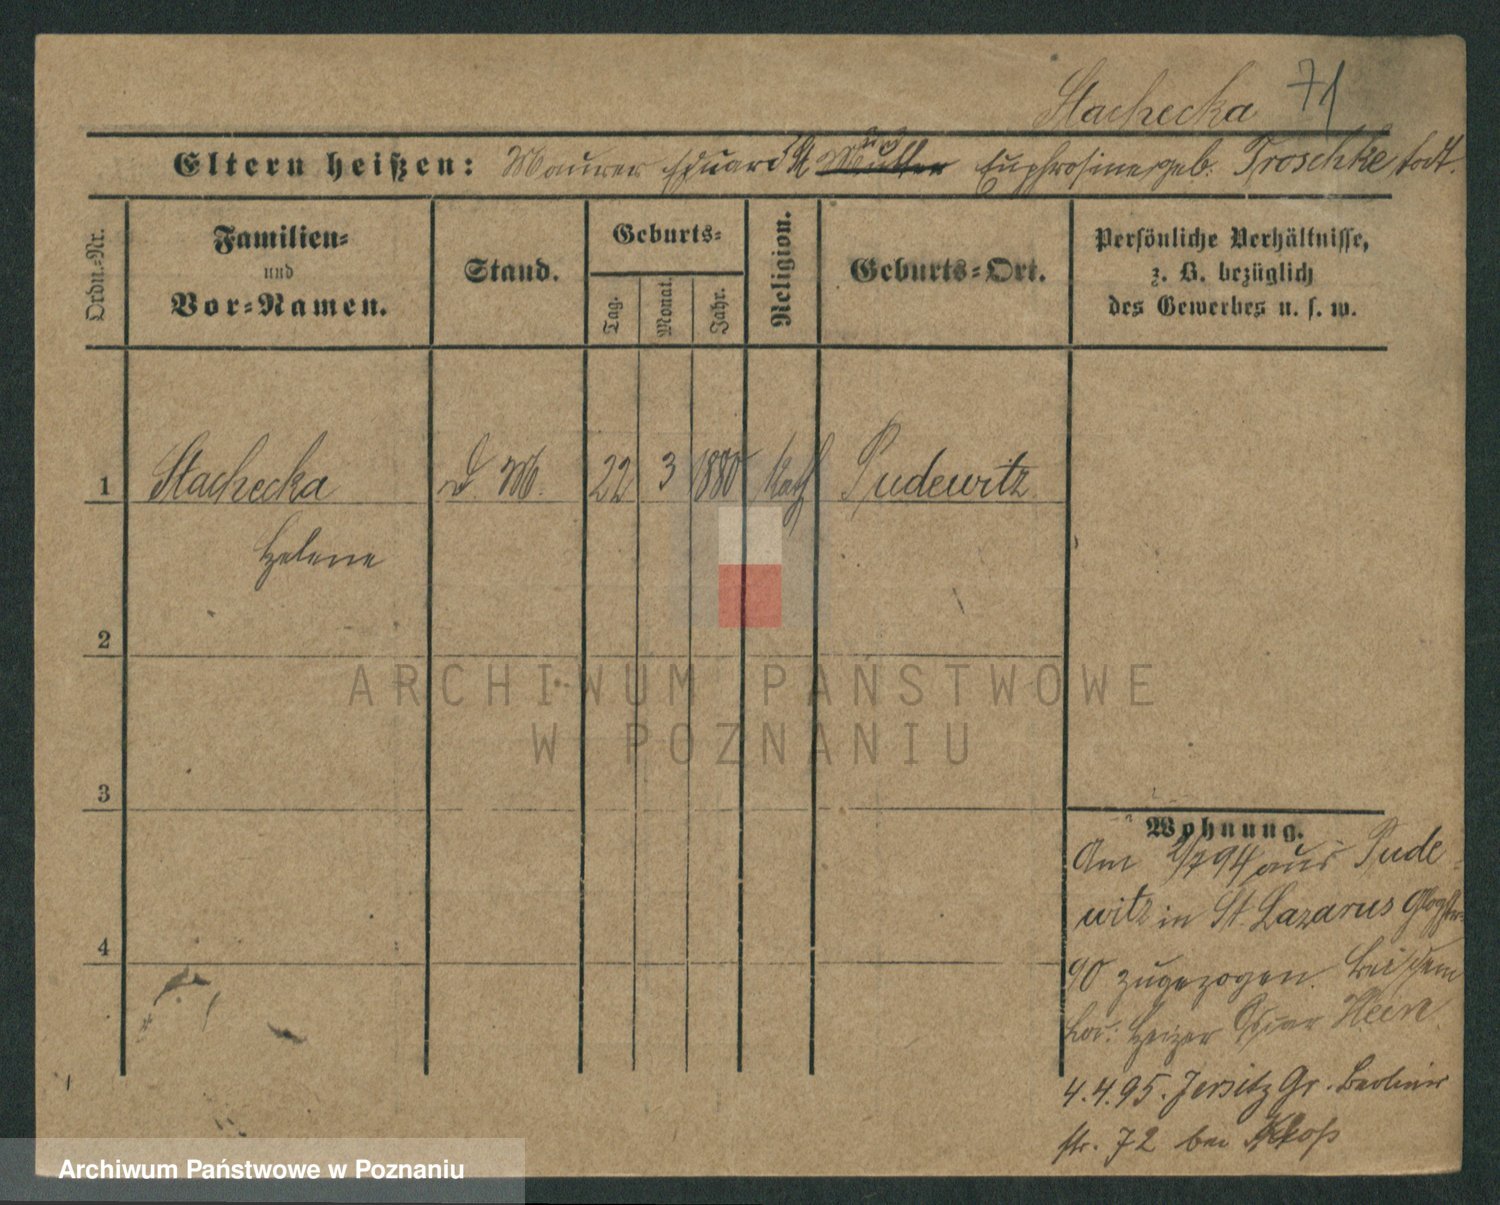 Stachecka 71
Eltern heißen: Maurer Eduard St. Mutter und Euphrosine geb. Troschke todt.
Ordn.-Nr.
Familien-
und
Vor-Namen.
Stand.
Geburts-
Tag.
Monat.
Jahr.
Religion.
Geburts-Ort.
Persönliche Verhältnisse,
z. B. bezüglich
des Gewerbes u. s. w.
1 Stachecka D. M. 22 3 1880 Kath Pudewitz
Helene
2
3
4
Wohnung.
Am 2/7 94 aus Pude-
witz in St. Lazarus Glogstr.
90 zugezogen. bei dem
Heizer Oscar
4.4.95. Jersitz Gr. Berliner
str. 72 bei
ARCHIWUM PAŃSTWOWE
W POZNANIU
Archiwum Państwowe w Poznaniu